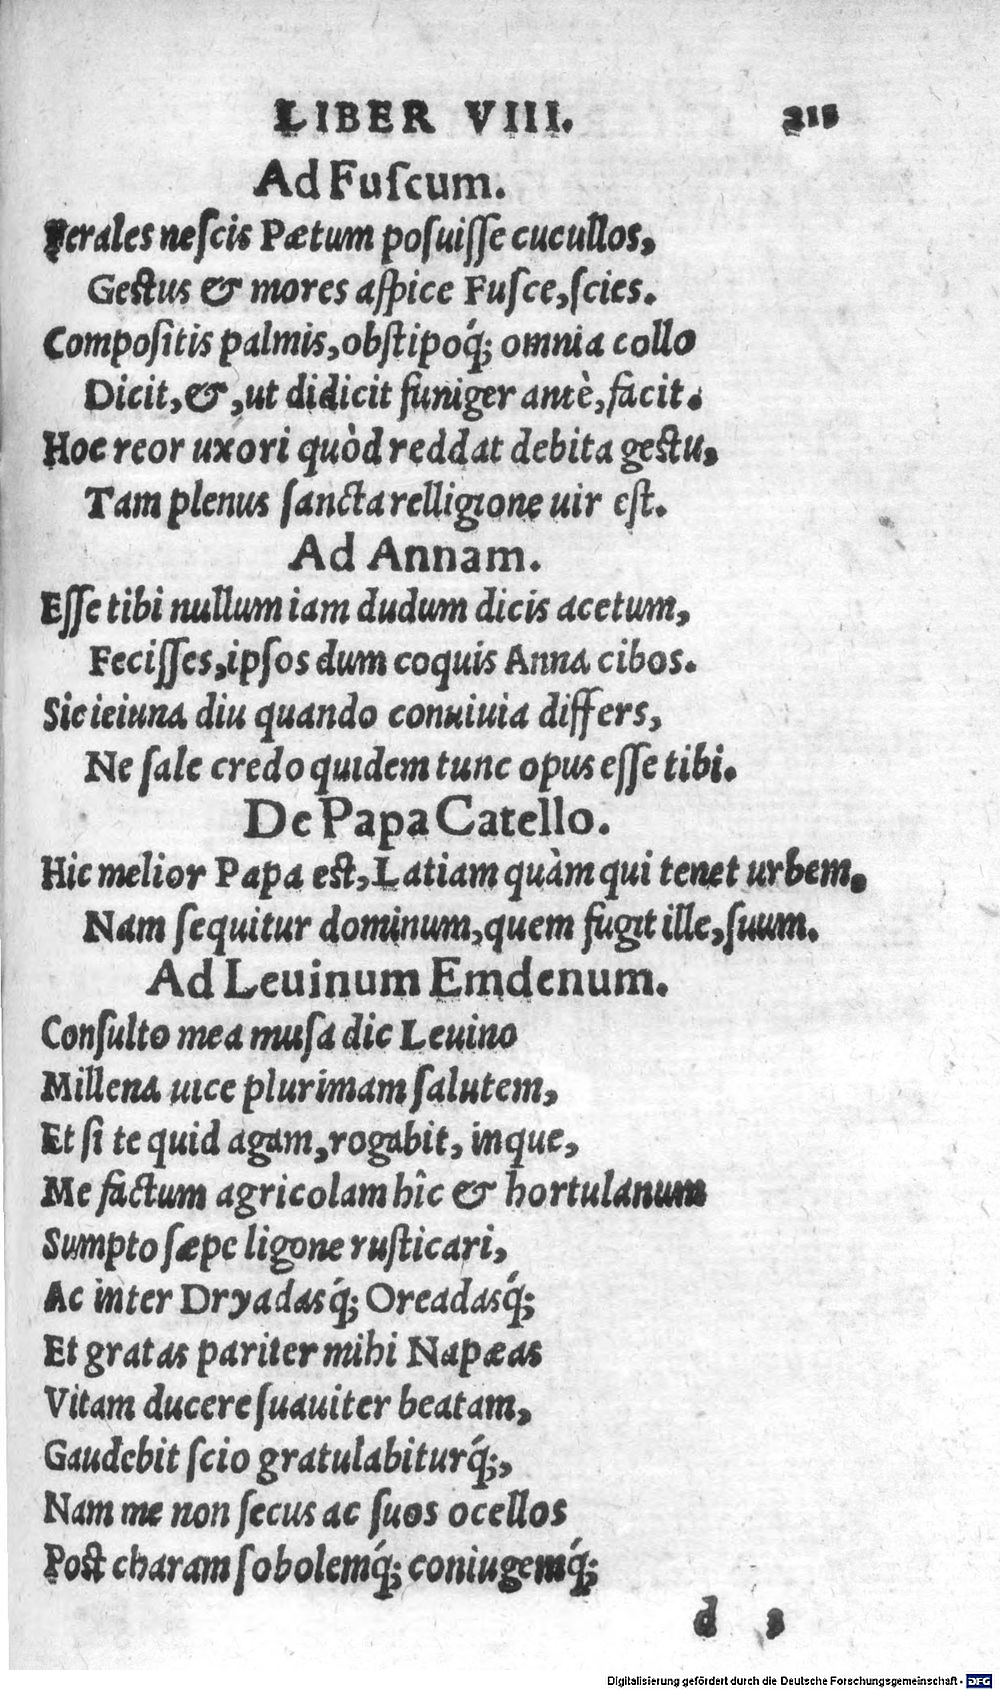 LIBER VIII.
Ad Fuſcum.
Ferales neſcis Pætum poſuiſſe cucullos,
Geſtus & mores aſpice Fuſce, ſcies.
Compoſitis palmis, obſtipoq́; omnia collo
Dicit, &, ut didicit funiger antè, facit.
Hoc reor uxori quòd reddat debita geſtu,
Tam plenus ſancta relligione uir eſt.
Ad Annam.
Eſſe tibi nullum iam dudum dicis acetum,
Feciſſes, ipſos dum coquis Anna cibos.
Sic ieiuna diu quando conuiuia differs,
Ne ſale credo quidem tunc opus eſſe tibi.
De Papa Catello.
Hic melior Papa eſt, Latiam quàm qui tenet urbem.
Nam ſequitur dominum, quem fugit ille, ſuum.
Ad Leuinum Emdenum.
Conſulto mea muſa dic Leuino
Millena uice plurimam ſalutem,
Et ſi te quid agam, rogabit, inque,
Me factum agricolam hîc & hortulanum
Sumpto ſæpe ligone ruſticari,
Ac inter Dryadasq́; Oreadasq́;
Et gratas pariter mihi Napæas
Vitam ducere ſuauiter beatam,
Gaudebit ſcio gratulabiturq́;,
Nam me non ſecus ac ſuos ocellos
Poſt charam ſobolemq́; coniugemq́;
d
Digitalisierung gefördert durch die Deutsche Forschungsgemeinschaft - DFG